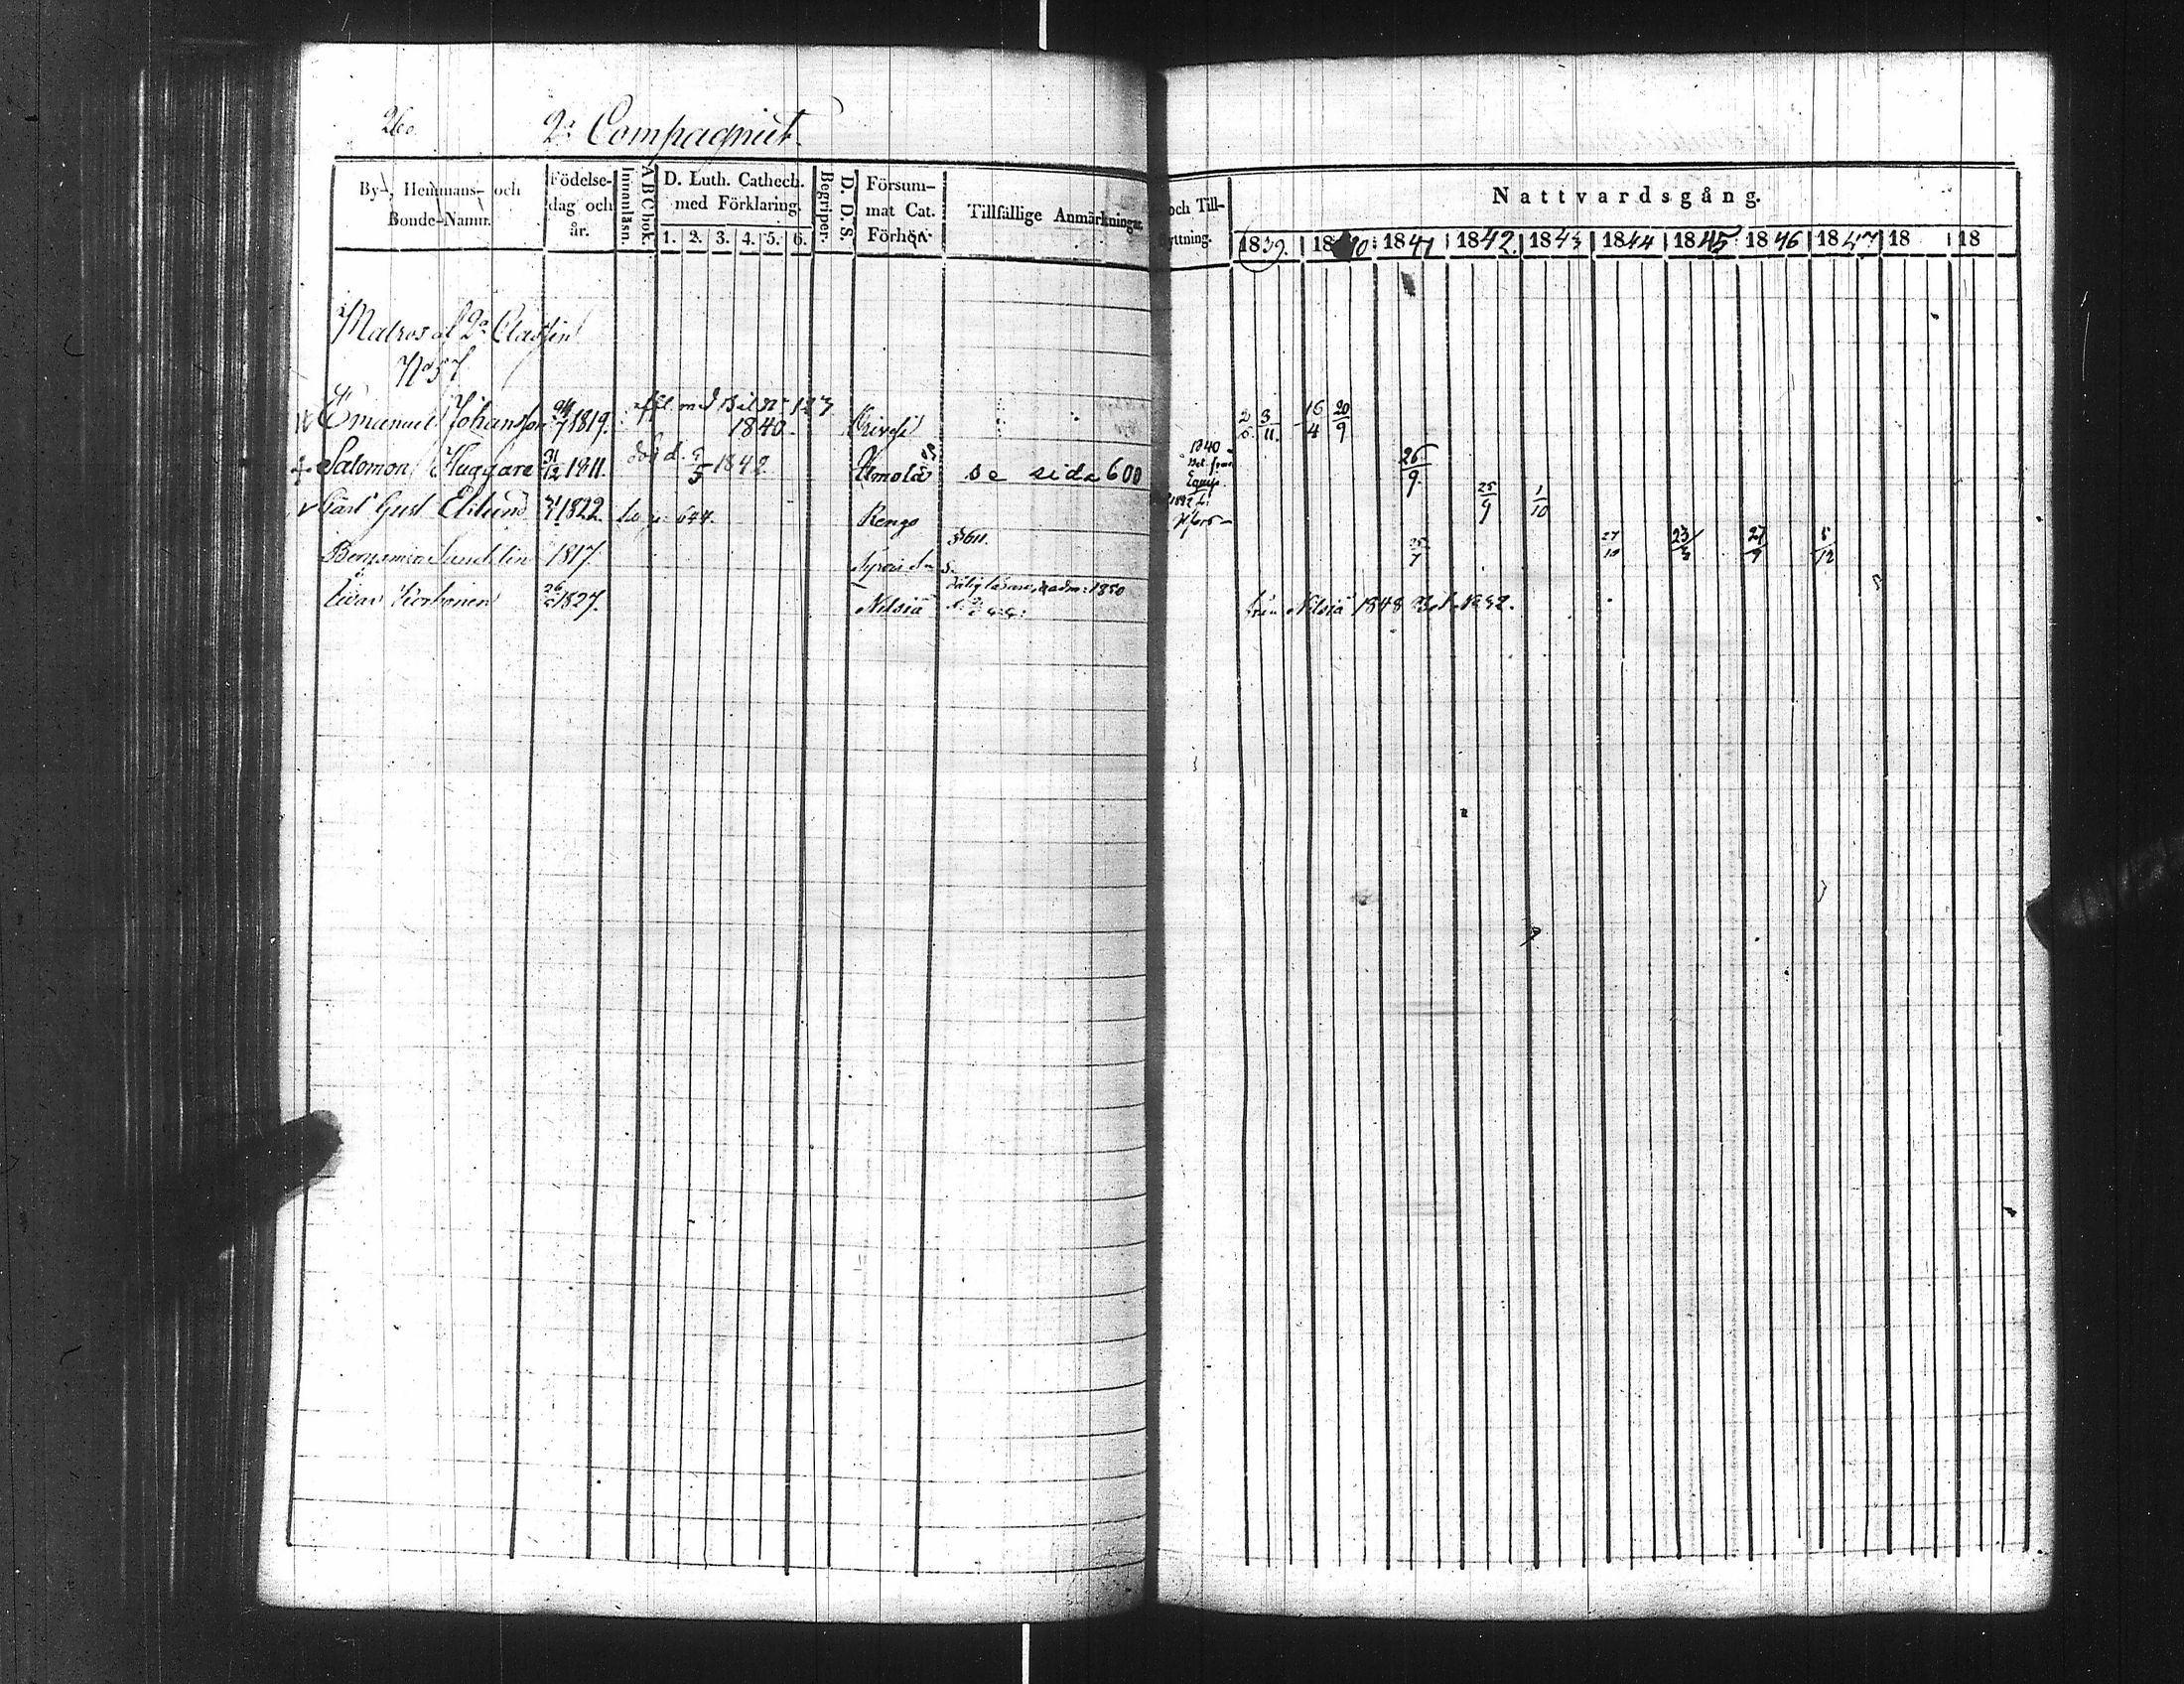 260.
2a Compagniet.
By-, Hemmans- och Bonde-Namn.
Födelse-dag och år.
Innanläsn.
A B C bok.
D. Luth. Cathech. med Förklaring.
1. 2. 3. 4. 5. 6.
Begriper.
D. D. S.
Försum-mat Cat. Förhör.
Tillfällige Anmärkningar
och Till-
yttning.
Nattvardsgång.
1839. 1840 1841 1842. 1843 1844 1845 1846 1847 18 18
Matros af 2a Classen
No 57
Emanuel Johansson 24/7 1819. Bil No 123 1840. Orivesi 3/11. 16/4 20/9
Salomon Huggare 31/12 1811. död d. 1842 Uimola se sida 600 1840 26/9
Carl Gust Eklund 1822. 644. Rengo 25/9 1/10
Benjamin Sundelin 1817. 25/7 27/10 23/3 27/9 5/12
Korhonen 26/2 1827. Nilsiä från Nilsiä 1848